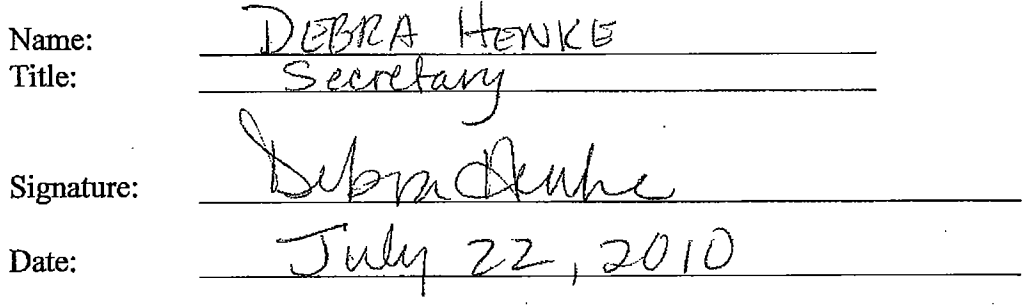 Name: DEBRA HENKE
Title: Secretary
Signature: Debra Henke
Date: July 22, 2010